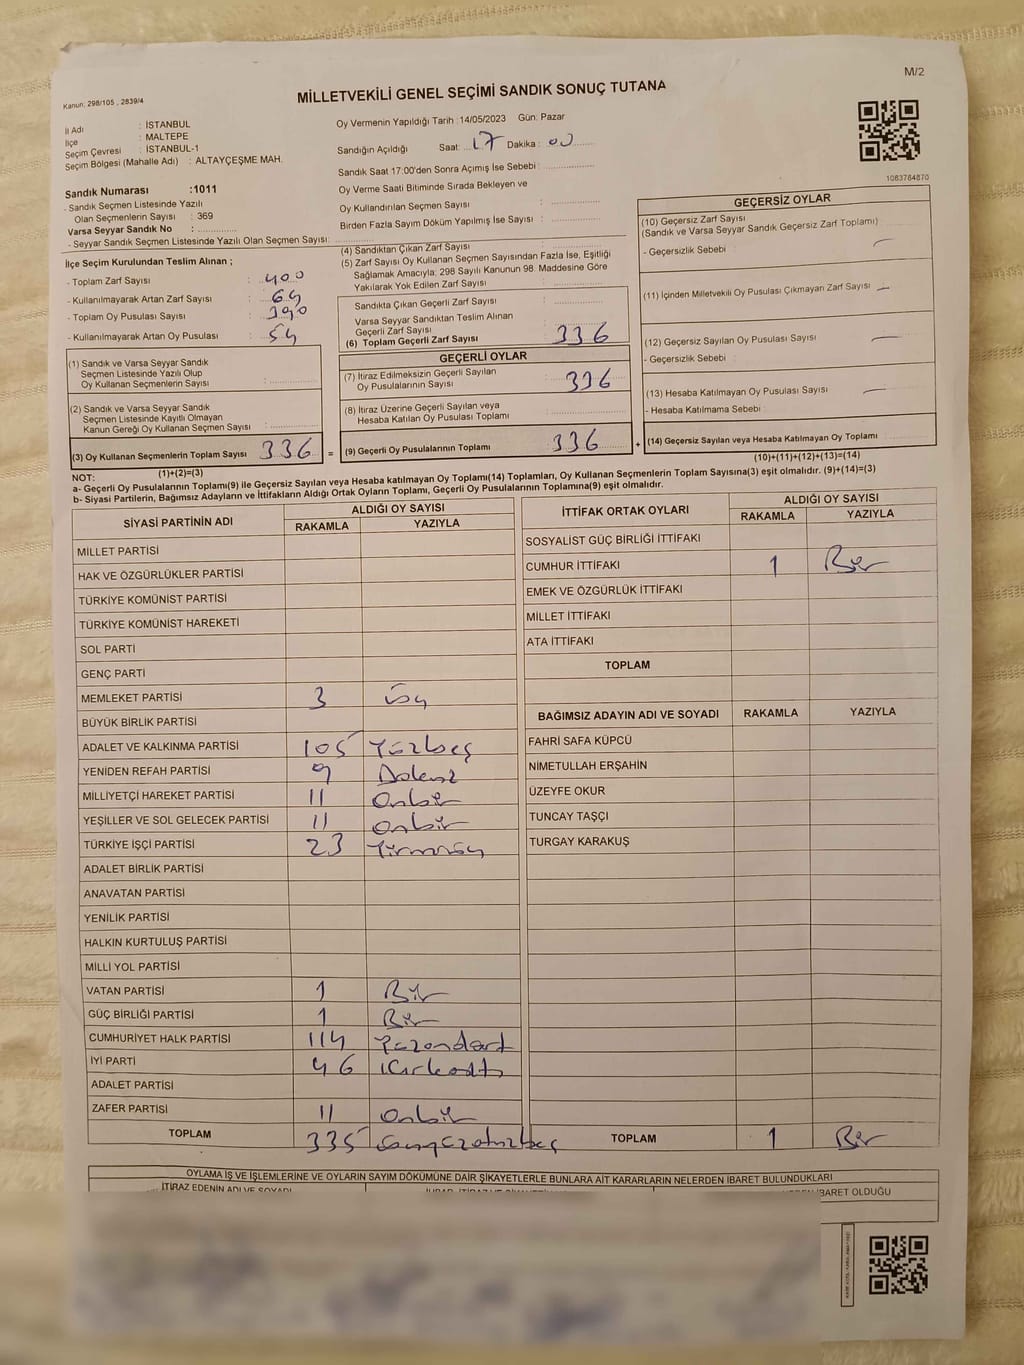 M/2
Kanun; 298/105 , 2839/4
MİLLETVEKİLİ GENEL SEÇİMİ SANDIK SONUÇ TUTANA
İl Adı : İSTANBUL
İlçe : MALTEPE
Seçim Çevresi : İSTANBUL-1
Seçim Bölgesi (Mahalle Adı) : ALTAYÇEŞME MAH.
Sandık Numarası :1011
- Sandık Seçmen Listesinde Yazılı
Olan Seçmenlerin Sayısı : 369
Varsa Seyyar Sandık No :
- Seyyar Sandık Seçmen Listesinde Yazılı Olan Seçmen Sayısı:
Oy Vermenin Yapıldığı Tarih :14/05/2023 Gün: Pazar
Sandığın Açıldığı Saat: 17 Dakika : 00
Sandık Saat 17:00'den Sonra Açımış İse Sebebi :
Oy Verme Saati Bitiminde Sırada Bekleyen ve
Oy Kullandırılan Seçmen Sayısı :
Birden Fazla Sayım Döküm Yapılmış İse Sayısı :
1083764870
İlçe Seçim Kurulundan Teslim Alınan ;
- Toplam Zarf Sayısı : 400
- Kullanılmayarak Artan Zarf Sayısı : 64
- Toplam Oy Pusulası Sayısı : 390
- Kullanılmayarak Artan Oy Pusulası : 54
(1) Sandık ve Varsa Seyyar Sandık
Seçmen Listesinde Yazılı Olup
Oy Kullanan Seçmenlerin Sayısı :
(2) Sandık ve Varsa Seyyar Sandık
Seçmen Listesinde Kayıtlı Olmayan
Kanun Gereği Oy Kullanan Seçmen Sayısı :
(3) Oy Kullanan Seçmenlerin Toplam Sayısı 336 =
(1)+(2)=(3)
(4) Sandıktan Çıkan Zarf Sayısı :
(5) Zarf Sayısı Oy Kullanan Seçmen Sayısından Fazla İse, Eşitliği
Sağlamak Amacıyla; 298 Sayılı Kanunun 98. Maddesine Göre
Yakılarak Yok Edilen Zarf Sayısı :
Sandıkta Çıkan Geçerli Zarf Sayısı :
Varsa Seyyar Sandıktan Teslim Alınan
Geçerli Zarf Sayısı :
(6) Toplam Geçerli Zarf Sayısı : 336
GEÇERLİ OYLAR
(7) İtiraz Edilmeksizin Geçerli Sayılan
Oy Pusulalarının Sayısı : 336
(8) İtiraz Üzerine Geçerli Sayılan veya
Hesaba Katılan Oy Pusulası Toplamı :
(9) Geçerli Oy Pusulalarının Toplamı 336 +
GEÇERSİZ OYLAR
(10) Geçersiz Zarf Sayısı :
(Sandık ve Varsa Seyyar Sandık Geçersiz Zarf Toplamı)
- Geçersizlik Sebebi : —
(11) İçinden Milletvekili Oy Pusulası Çıkmayan Zarf Sayısı —
(12) Geçersiz Sayılan Oy Pusulası Sayısı : —
- Geçersizlik Sebebi :
(13) Hesaba Katılmayan Oy Pusulası Sayısı : —
- Hesaba Katılmama Sebebi :
(14) Geçersiz Sayılan veya Hesaba Katılmayan Oy Toplamı :
(10)+(11)+(12)+(13)=(14)
NOT:
a- Geçerli Oy Pusulalarının Toplamı(9) ile Geçersiz Sayılan veya Hesaba katılmayan Oy Toplamı(14) Toplamları, Oy Kullanan Seçmenlerin Toplam Sayısına(3) eşit olmalıdır. (9)+(14)=(3)
b- Siyasi Partilerin, Bağımsız Adayların ve İttifakların Aldığı Ortak Oyların Toplamı, Geçerli Oy Pusulalarının Toplamına(9) eşit olmalıdır.
SİYASİ PARTİNİN ADI ALDIĞI OY SAYISI
RAKAMLA YAZIYLA
MİLLET PARTİSİ
HAK VE ÖZGÜRLÜKLER PARTİSİ
TÜRKİYE KOMÜNİST PARTİSİ
TÜRKİYE KOMÜNİST HAREKETİ
SOL PARTİ
GENÇ PARTİ
MEMLEKET PARTİSİ 3 üç
BÜYÜK BİRLİK PARTİSİ
ADALET VE KALKINMA PARTİSİ 105 Yüzbeş
YENİDEN REFAH PARTİSİ 9 Dokuz
MİLLİYETÇİ HAREKET PARTİSİ 11 Onbir
YEŞİLLER VE SOL GELECEK PARTİSİ 11 Onbir
TÜRKİYE İŞÇİ PARTİSİ 23 Yirmiüç
ADALET BİRLİK PARTİSİ
ANAVATAN PARTİSİ
YENİLİK PARTİSİ
HALKIN KURTULUŞ PARTİSİ
MİLLİ YOL PARTİSİ
VATAN PARTİSİ 1 Bir
GÜÇ BİRLİĞİ PARTİSİ 1 Bir
CUMHURİYET HALK PARTİSİ 114 Yüzondört
İYİ PARTİ 46 Kırkaltı
ADALET PARTİSİ
ZAFER PARTİSİ 11 Onbir
TOPLAM 335
İTTİFAK ORTAK OYLARI ALDIĞI OY SAYISI
RAKAMLA YAZIYLA
SOSYALİST GÜÇ BİRLİĞİ İTTİFAKI
CUMHUR İTTİFAKI 1 Bir
EMEK VE ÖZGÜRLÜK İTTİFAKI
MİLLET İTTİFAKI
ATA İTTİFAKI
TOPLAM
BAĞIMSIZ ADAYIN ADI VE SOYADI RAKAMLA YAZIYLA
FAHRİ SAFA KÜPCÜ
NİMETULLAH ERŞAHİN
ÜZEYFE OKUR
TUNCAY TAŞÇI
TURGAY KARAKUŞ
TOPLAM 1 Bir
OYLAMA İŞ VE İŞLEMLERİNE VE OYLARIN SAYIM DÖKÜMÜNE DAİR ŞİKAYETLERLE BUNLARA AİT KARARLARIN NELERDEN İBARET BULUNDUKLARI
İTİRAZ EDENİN ADI VE SOYADI
İBARET OLDUĞU